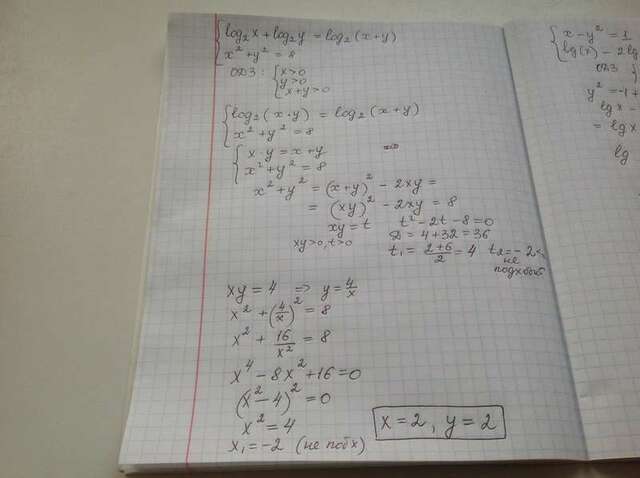 log₂x + log₂y = log₂(x+y)
x² + y² = 8
ОДЗ: { x>0
y>0
x+y>0
log₂(x·y) = log₂(x+y)
x² + y² = 8
x·y = x+y
x² + y² = 8
x² + y² = (x+y)² - 2xy =
= (xy)² - 2xy = 8
xy = t t² - 2t - 8 = 0
xy>0, t>0 D = 4+32 = 36
t₁ = (2+6)/2 = 4 t₂ = -2
не
xy = 4 ⇒ y = 4/x
x² + (4/x)² = 8
x² + 16/x² = 8
x⁴ - 8x² + 16 = 0
(x² - 4)² = 0
x² = 4
x₁ = -2 (не подх)
x = 2, y = 2
x - y² = 1
lg(x) - 2lg
ОДЗ {
y² = -1 +
lg x -
= lg x
lg